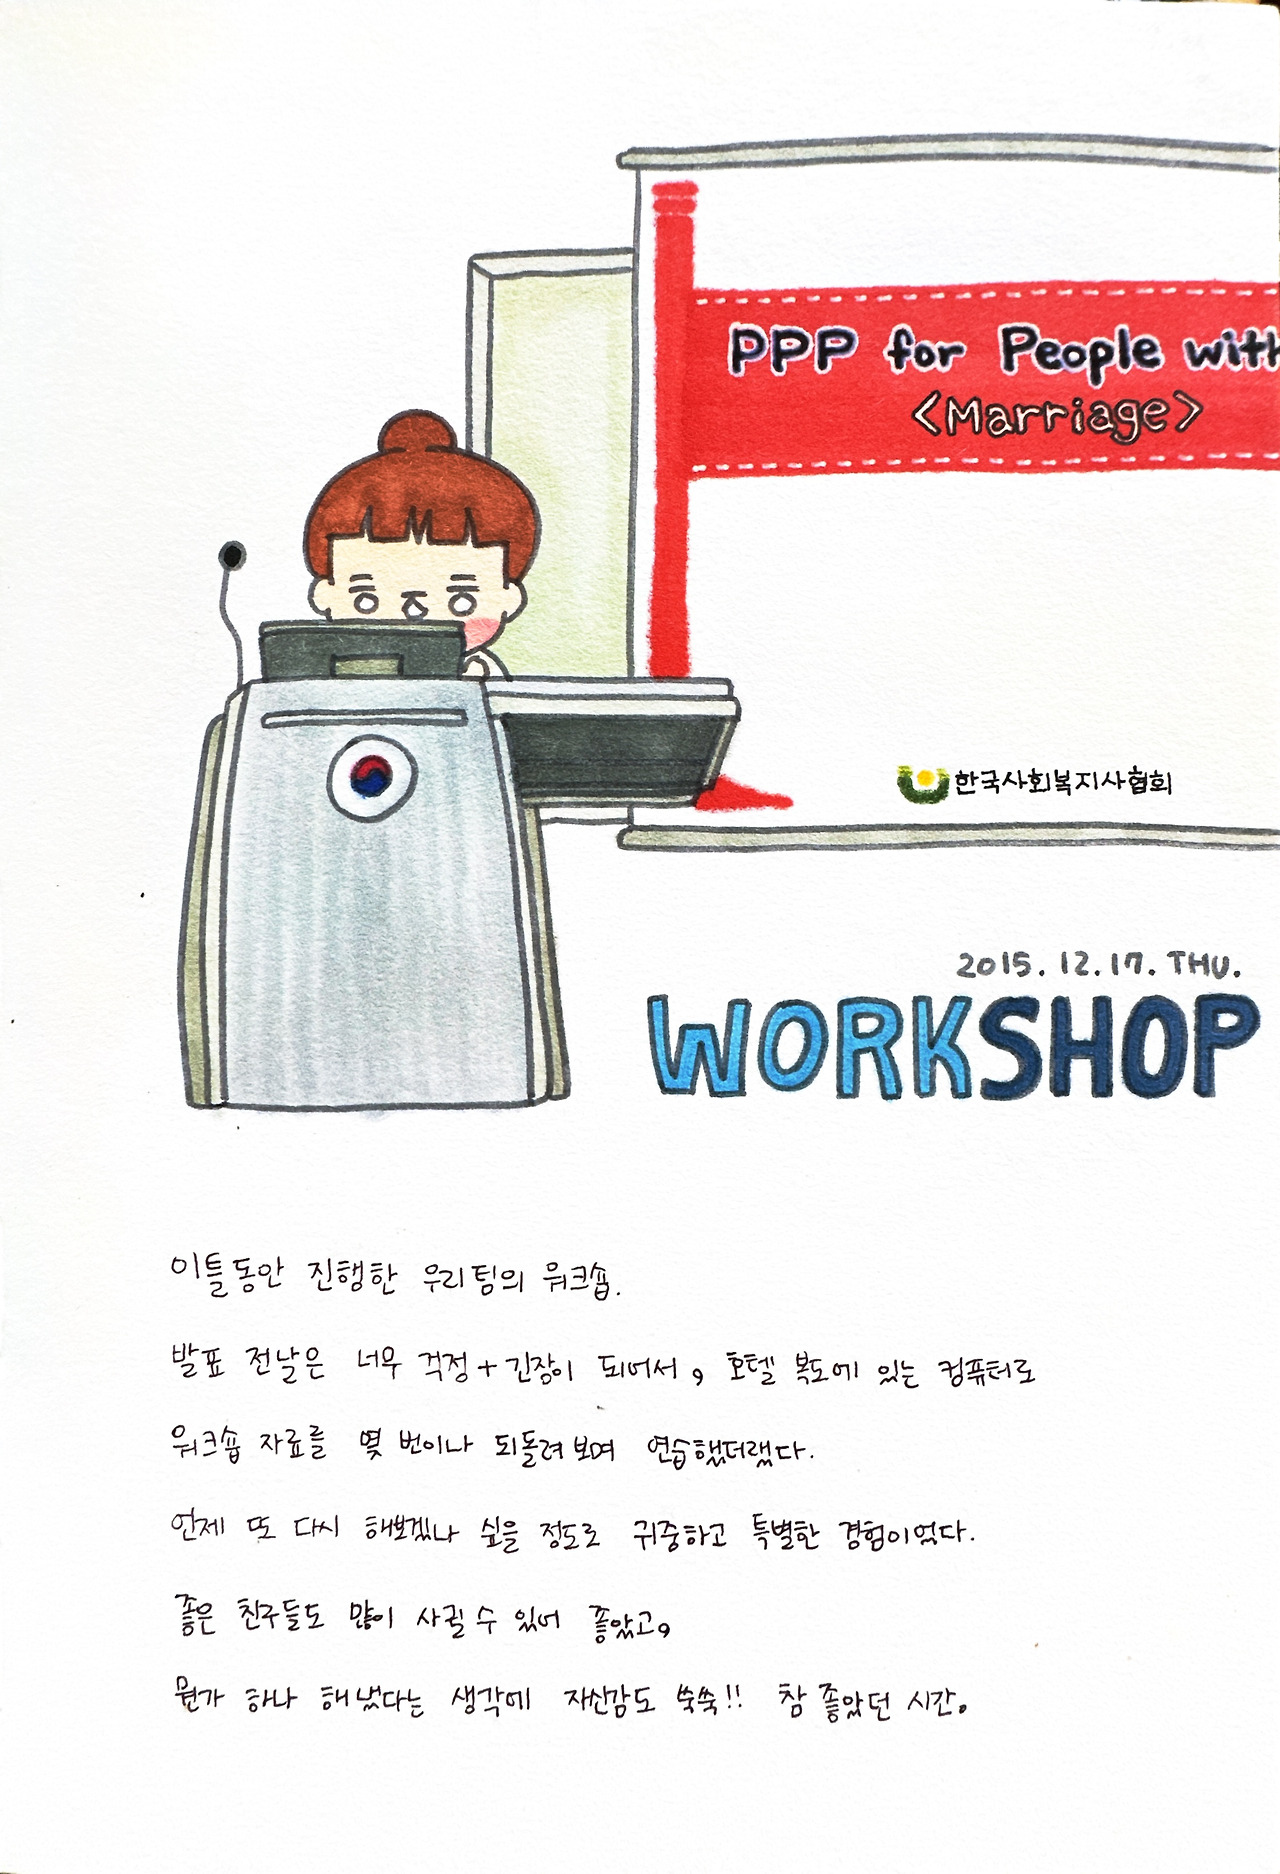 PPP for People with
<Marriage>
한국사회복지사협회
2015. 12. 17. THU.
WORKSHOP
이틀동안 진행한 우리팀의 워크숍.
발표 전날은 너무 걱정+긴장이 되어서, 호텔 복도에 있는 컴퓨터로
워크숍 자료를 몇 번이나 되돌려보며 연습했더랬다.
언제 또 다시 해보겠나 싶을 정도로 귀중하고 특별한 경험이었다.
좋은 친구들도 많이 사귈 수 있어 좋았고,
뭔가 하나 해냈다는 생각에 자신감도 쑥쑥!! 참 좋았던 시간.